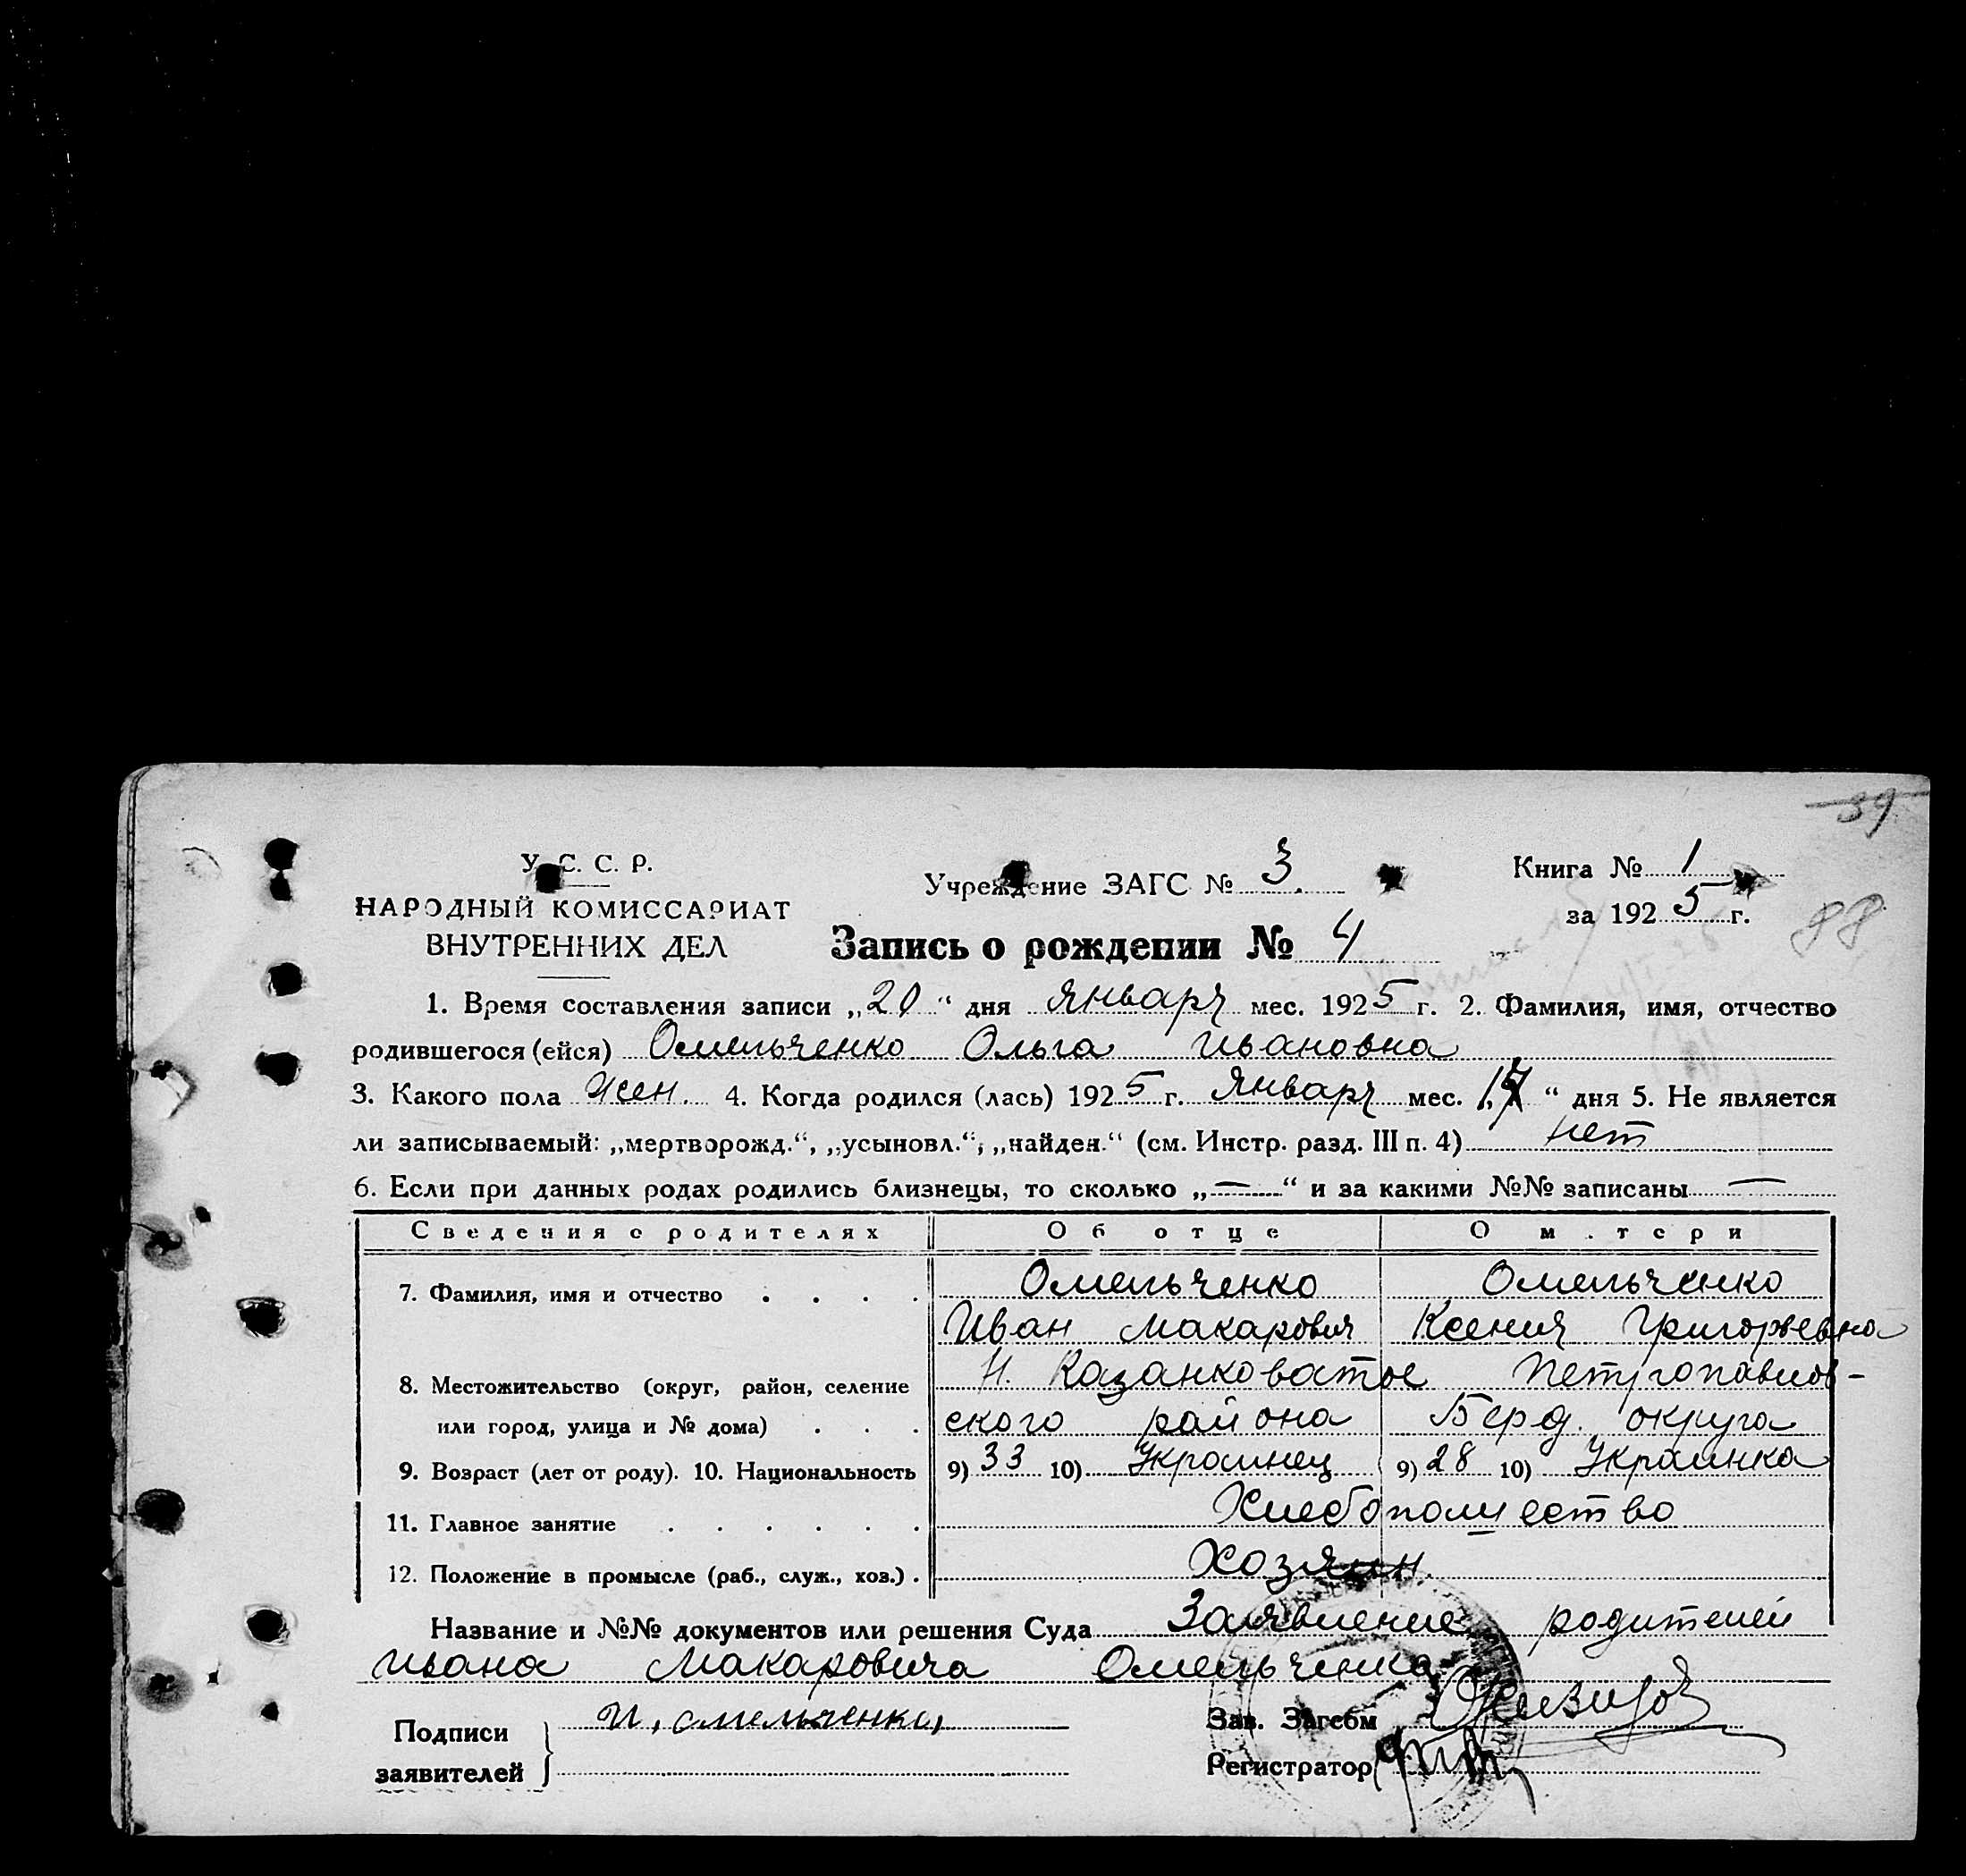 39
У. С. С. Р.
НАРОДНЫЙ КОМИССАРИАТ
ВНУТРЕННИХ ДЕЛ
Учреждение ЗАГС № 3.
Книга № 1
за 1925 г.
88
Запись о рождении № 4
1. Время составления записи „20“ дня Января мес. 1925 г. 2. Фамилия, имя, отчество
родившегося (ейся) Омельченко Ольга Ивановна
3. Какого пола жен. 4. Когда родился (лась) 1925 г. Января мес. „17“ дня 5. Не является
ли записываемый: „мертворожд.“, „усыновл.“, „найден.“ (см. Инстр. разд. III п. 4) нет
6. Если при данных родах родились близнецы, то сколько „—“ и за какими №№ записаны —
Сведения о родителях Об отце О м.тери
7. Фамилия, имя и отчество . . . . Омельченко Омельченко
Иван Макарович Ксения Григорьевна
8. Местожительство (округ, район, селение Н. Казанковатое Петропавлов-
или город, улица и № дома) . . . ского района Берд. округа
9. Возраст (лет от роду). 10. Национальность 9) 33 10) Украинец 9) 28 10) Украинка
11. Главное занятие . . . . . . Хлебопашество
12. Положение в промысле (раб., служ., хоз.) . Хозяин
Название и №№ документов или решения Суда Заявление родителей
Ивана Макаровича Омельченка
Подписи
заявителей
И, омельченко,
Зав. Загсом
Регистратор